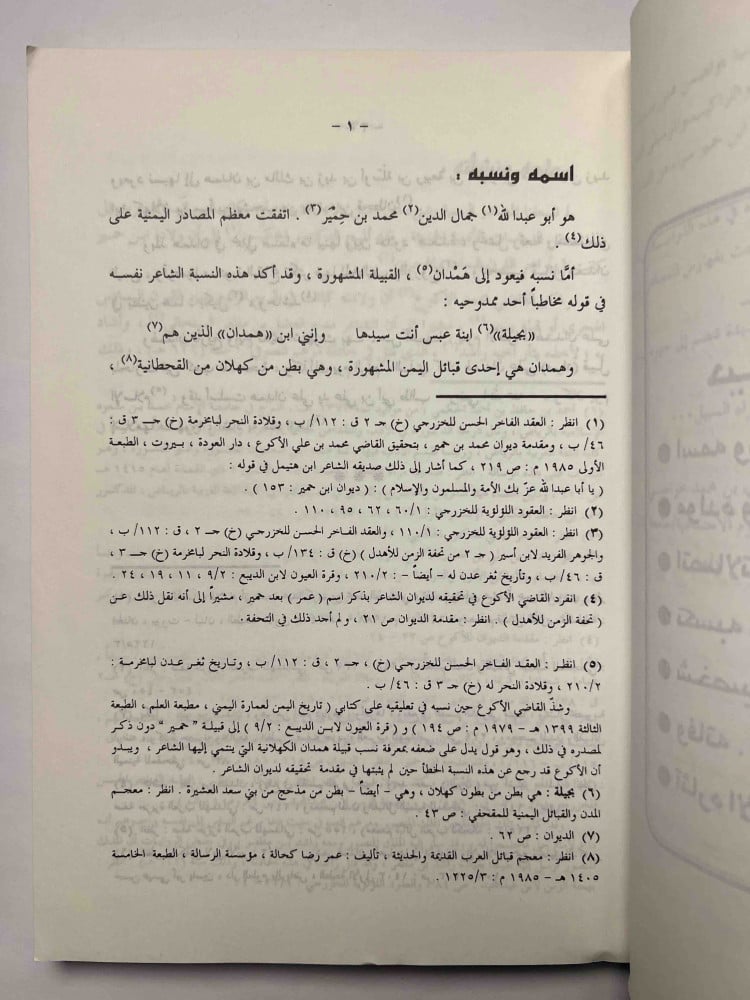 - ١ -
اسمه ونسبه :
هو أبو عبدالله(١) جمال الدين(٢) محمد بن حِمْيَر(٣) . اتفقت معظم المصادر اليمنية على
ذلك(٤) .
أمّا نسبه فيعود إلى هَمْدان(٥) ، القبيلة المشهورة ، وقد أكد هذه النسبة الشاعر نفسه
في قوله مخاطباً أحد ممدوحيه :
«بجيلة»(٦) ابنة عبس أنت سيدها وإنني ابن «همدان» الذين هم(٧)
وهمدان هي إحدى قبائل اليمن المشهورة ، وهي بطن من كهلان من القحطانية(٨) ،
(١) انظر : العقد الفاخر الحسن للخزرجي (خ) جـ ٢ ق : ١١٢/ ب ، وقلادة النحر لبامخرمة (خ) جـ ٣ ق :
٤٦/ ب ، ومقدمة ديوان محمد بن حمير ، بتحقيق القاضي محمد بن علي الأكوع ، دار العودة ، بيروت ، الطبعة
الأولى ١٩٨٥ م : ص ٢١٩ ، كما أشار إلى ذلك صديقه الشاعر ابن هتيمل في قوله :
( يا أبا عبدالله عزّ بك الأمة والمسلمون والإسلام ) : ( ديوان ابن حمير : ١٥٣ ) .
(٢) انظر : العقود اللؤلؤية للخزرجي : ٦٠/١ ، ٦٢ ، ٩٥ ، ١١٠ .
(٣) انظر : العقود اللؤلؤية للخزرجي : ١١٠/١ ، والعقد الفاخر الحسن للخزرجي (خ) جـ ٢ ، ق : ١١٢/ ب ،
والجوهر الفريد لابن أسير ( جـ ٢ من تحفة الزمن للأهدل ) (خ) ق : ١٣٤/ ب ، وقلادة النحر لبامخرمة (خ) جـ ٣ ،
ق : ٤٦/ ب ، وتأريخ ثغر عدن له - أيضاً - : ٢١٠/٢ ، وقرة العيون لابن الديبع : ٩/٢ ، ١١ ، ١٩ ، ٢٤ .
(٤) انفرد القاضي الأكوع في تحقيقه لديوان الشاعر بذكر اسم ( عمر ) بعد حمير ، مشيراً إلى أنه نقل ذلك عن
( تحفة الزمن للأهدل ) . انظر : مقدمة الديوان ص ٢١ ، ولم أجد ذلك في التحفة .
(٥) انظر : العقد الفاخر الحسن للخزرجي (خ) ، جـ ٢ ، ق : ١١٢/ ب ، وتاريخ ثغر عدن لبامخرمة :
٢١٠/٢ ، وقلادة النحر له (خ) جـ ٣ ق : ٤٦/ ب .
وشذّ القاضي الأكوع حين نسبه في تعليقيه على كتابي ( تاريخ اليمن لعمارة اليمني ، مطبعة العلم ، الطبعة
الثالثة ١٣٩٩ هـ - ١٩٧٩ م : ص ١٩٤ ) و ( قرة العيون لابن الديبع : ٩/٢ ) إلى قبيلة " حمير " دون ذكر
لمصدره في ذلك ، وهو قول يدل على ضعفه بمعرفة نسب قبيلة همدان الكهلانية التي ينتمي إليها الشاعر ، ويبدو
أن الأكوع قد رجع عن هذه النسبة الخطأ حين لم يثبتها في مقدمة تحقيقه لديوان الشاعر .
(٦) بجيلة : هي بطن من بطون كهلان ، وهي - أيضاً - بطن من مذحج من بني سعد العشيرة . انظر : معجم
المدن والقبائل اليمنية للمقحفي : ص ٤٣ .
(٧) الديوان : ص ٦٢ .
(٨) انظر : معجم قبائل العرب القديمة والحديثة ، تأليف : عمر رضا كحالة ، مؤسسة الرسالة ، الطبعة الخامسة
١٤٠٥ هـ - ١٩٨٥ م : ١٢٢٥/٣ .